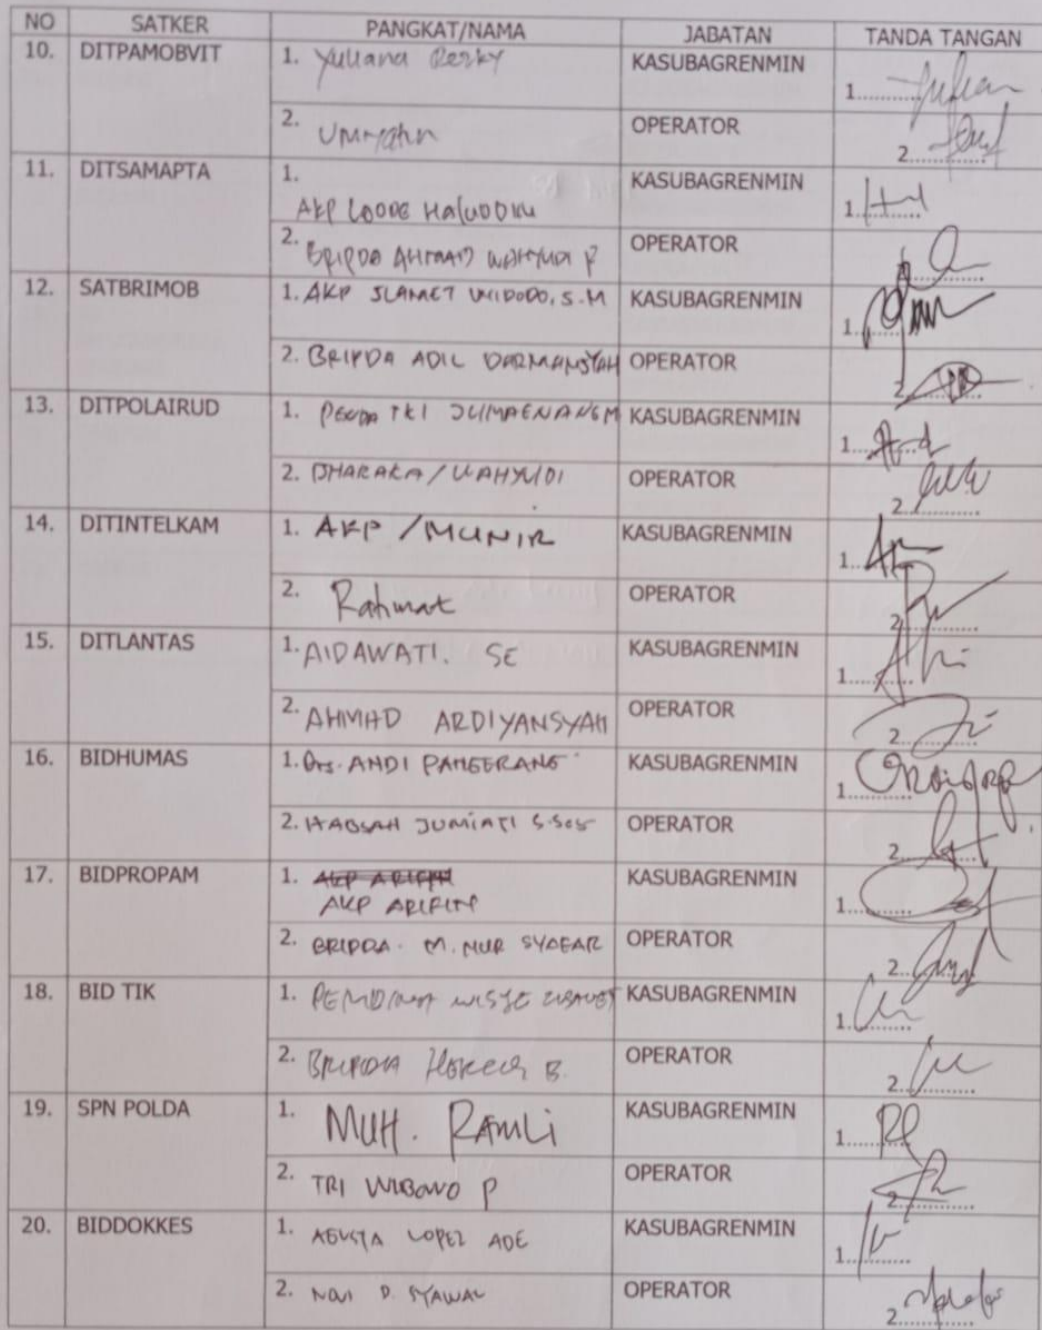 NO SATKER PANGKAT/NAMA JABATAN TANDA TANGAN
10. DITPAMOBVIT 1. Yuliana Resky KASUBAGRENMIN 1............
2. OPERATOR 2............
11. DITSAMAPTA 1. KASUBAGRENMIN 1............
AKP LAODE
2. BRIPDA AHMAD WAHYUDI P OPERATOR
12. SATBRIMOB 1. AKP SLAMET WIDODO, S.M KASUBAGRENMIN 1............
2. BRIPDA ADIL DARMANSYAH OPERATOR 2............
13. DITPOLAIRUD 1. KASUBAGRENMIN 1............
2. BHARAKA/WAHYUDI OPERATOR 2............
14. DITINTELKAM 1. AKP /MUNIR KASUBAGRENMIN 1............
2. Rahmat OPERATOR 2............
15. DITLANTAS 1. AIDAWATI. SE KASUBAGRENMIN 1............
2. AHMAD ARDIYANSYAH OPERATOR 2............
16. BIDHUMAS 1. Drs. ANDI PANGERANG KASUBAGRENMIN 1............
2. HABSAH JUMIATI S.Sos OPERATOR 2............
17. BIDPROPAM 1. AKP ARIFIN KASUBAGRENMIN 1............
AKP ARIFIN
2. BRIPDA. M. NUR SYAFAR OPERATOR 2............
18. BID TIK 1. KASUBAGRENMIN 1............
2. BRIPDA B. OPERATOR 2............
19. SPN POLDA 1. MUH. RAMLI KASUBAGRENMIN 1............
2. TRI WIBOWO P OPERATOR 2............
20. BIDDOKKES 1. AGUSTA LOPEZ ADE KASUBAGRENMIN 1............
2. NOVI D. SYAWAL OPERATOR 2............